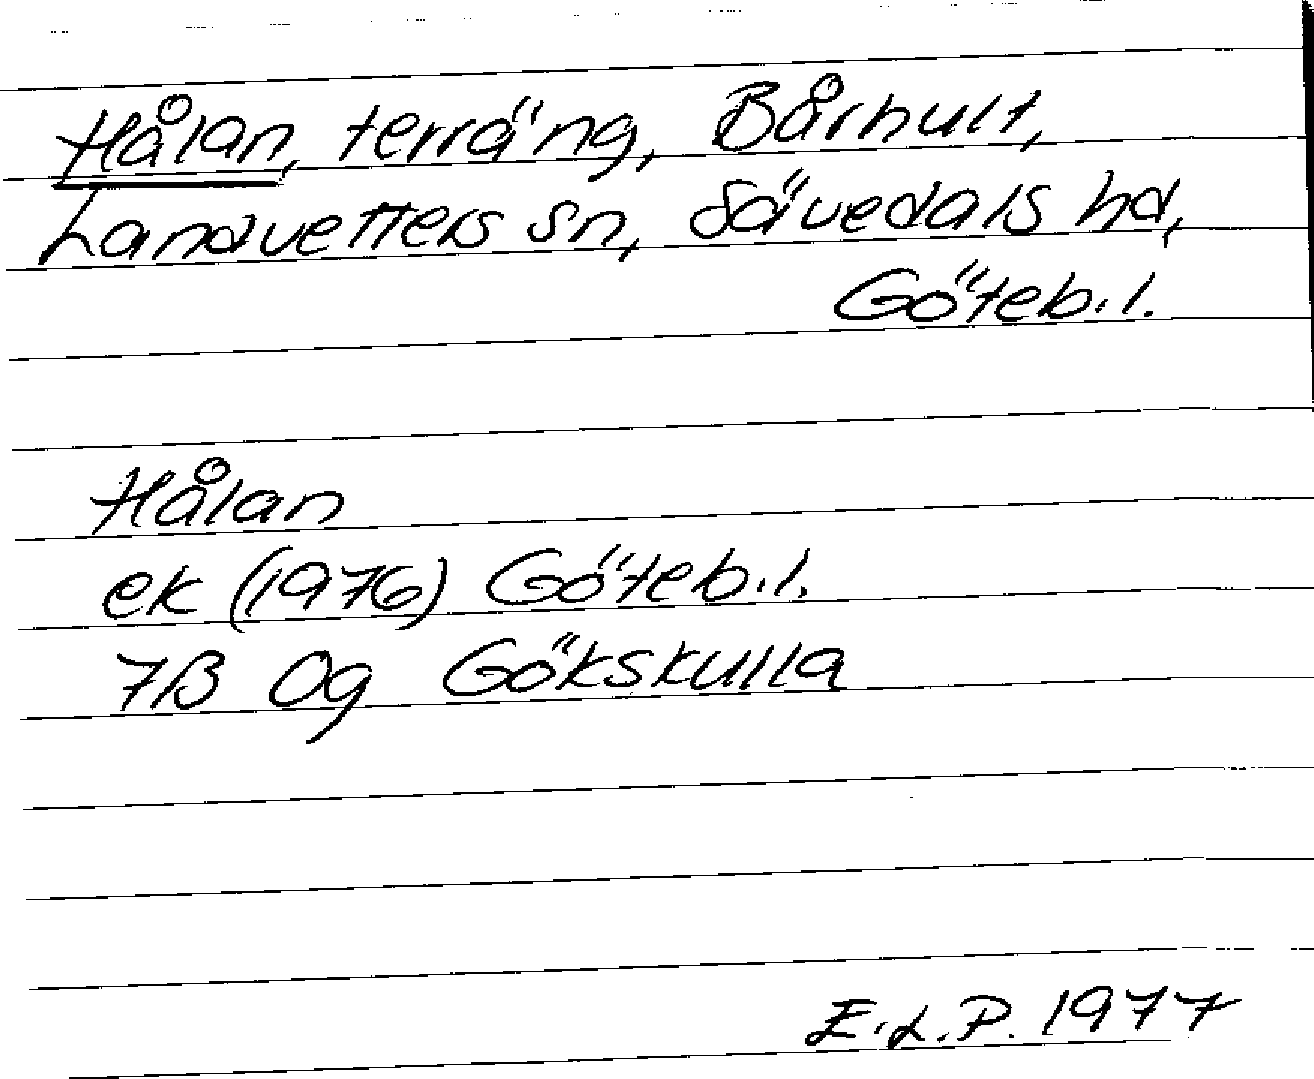 Hålan, terräng, Bårhult,
Landvetters sn, Sävedals hd,
Göteb.l.
Hålan
ek (1976) Göteb.l.
7B 0g Gökskulla
E.L.P. 1977